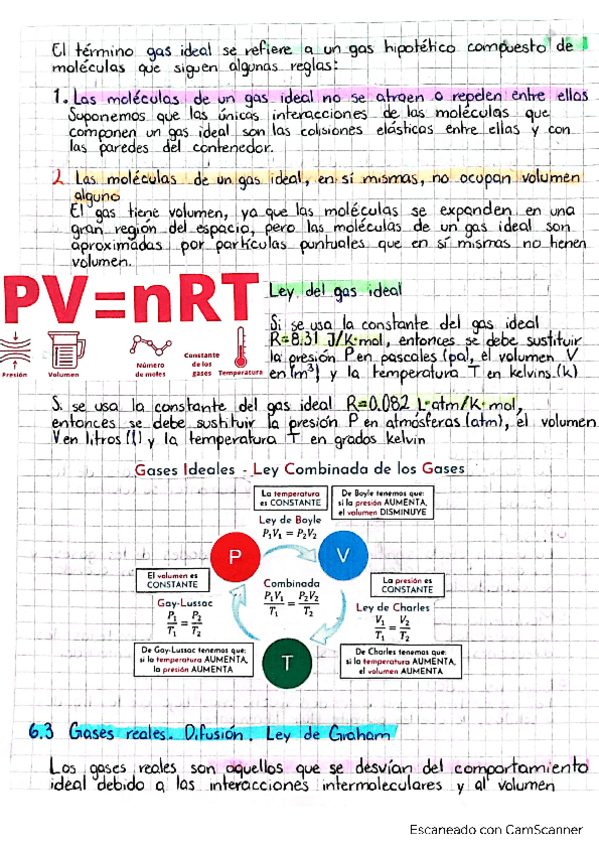 El término gas ideal se refiere a un gas hipotético compuesto de
moléculas que siguen algunas reglas:
1. Las moléculas de un gas ideal no se atraen o repelen entre ellas
Suponemos que las únicas interacciones de las moléculas que
componen un gas ideal son las colisiones elásticas entre ellas y con
las paredes del contenedor.
2 Las moléculas de un gas ideal, en sí mismas, no ocupan volumen
alguno
El gas tiene volumen, ya que las moléculas se expanden en una
gran región del espacio, pero las moléculas de un gas ideal son
aproximadas por partículas puntuales que en sí mismas no tienen
volumen.
PV=nRT
Presión
Volumen
Número
de moles
Constante
de los
gases
Temperatura
Ley del gas ideal
Si se usa la constante del gas ideal
R=8.31 J/K·mol, entonces se debe sustituir
la presión P en pascales (pa), el volumen V
en (m³) y la temperatura T en kelvins (k)
Si se usa la constante del gas ideal R=0.082 L·atm/K·mol,
entonces se debe sustituir la presión P en atmósferas (atm), el volumen
V en litros (l) y la temperatura T en grados kelvin
Gases Ideales - Ley Combinada de los Gases
La temperatura
es CONSTANTE
De Boyle tenemos que:
si la presión AUMENTA,
el volumen DISMINUYE
Ley de Boyle
P₁V₁ = P₂V₂
P
V
El volumen es
CONSTANTE
Combinada
P₁V₁/T₁ = P₂V₂/T₂
La presión es
CONSTANTE
Gay-Lussac
P₁/T₁ = P₂/T₂
Ley de Charles
V₁/T₁ = V₂/T₂
De Gay-Lussac tenemos que:
si la temperatura AUMENTA,
la presión AUMENTA
T
De Charles tenemos que:
si la temperatura AUMENTA,
el volumen AUMENTA
6.3 Gases reales. Difusión. Ley de Graham
Los gases reales son aquellos que se desvían del comportamiento
ideal debido a las interacciones intermoleculares y al volumen
Escaneado con CamScanner